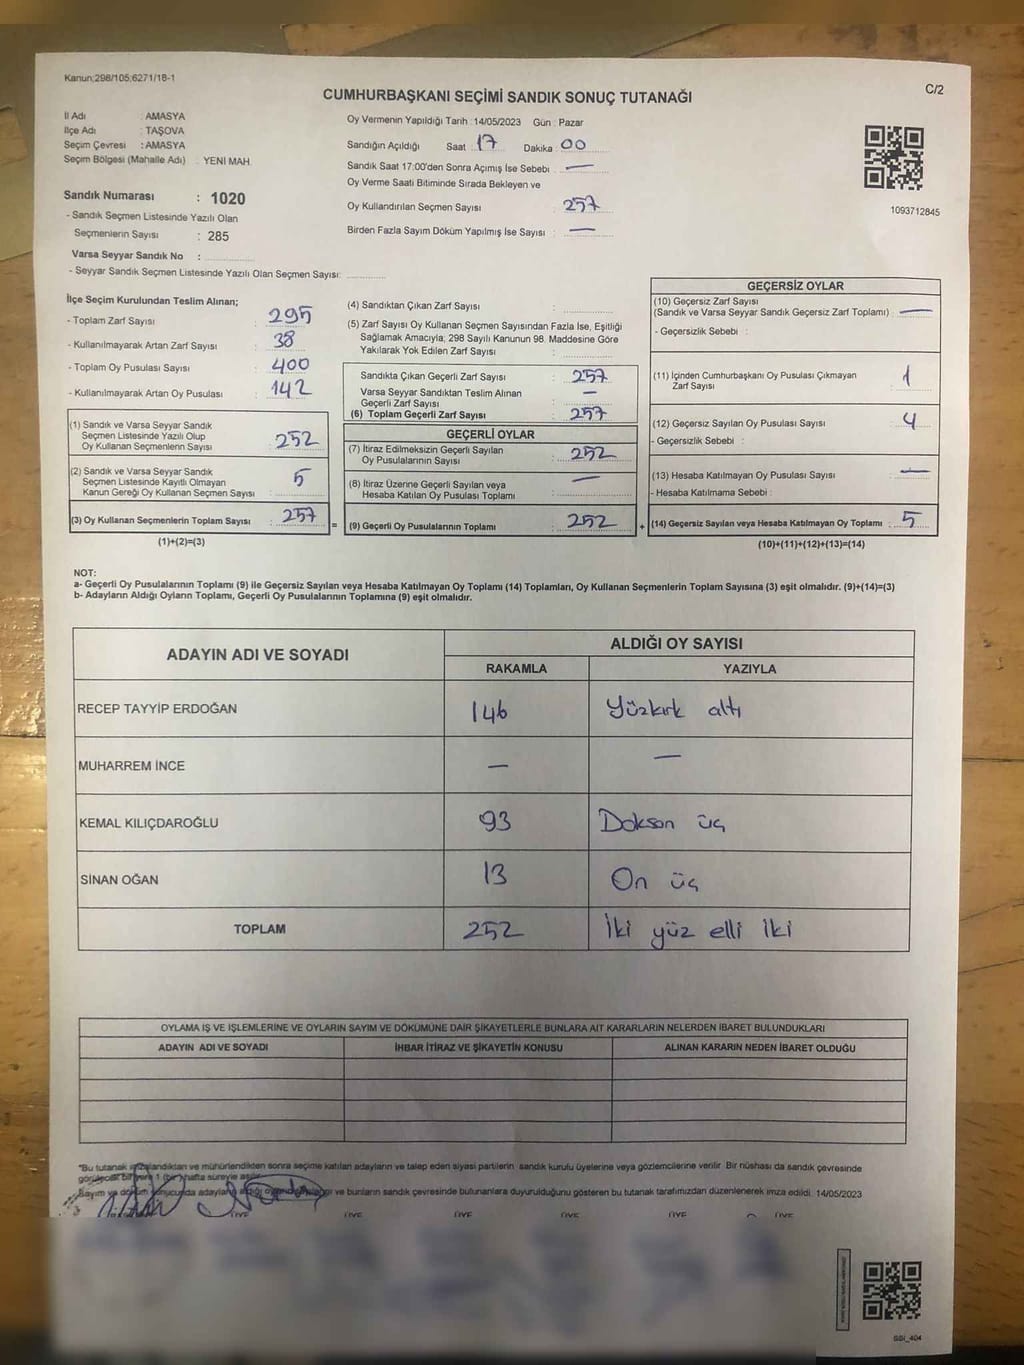 Kanun;298/105;6271/18-1
C/2
CUMHURBAŞKANI SEÇİMİ SANDIK SONUÇ TUTANAĞI
İl Adı : AMASYA
İlçe Adı : TAŞOVA
Seçim Çevresi : AMASYA
Seçim Bölgesi (Mahalle Adı) : YENİ MAH.
Sandık Numarası : 1020
- Sandık Seçmen Listesinde Yazılı Olan
Seçmenlerin Sayısı : 285
Varsa Seyyar Sandık No :
- Seyyar Sandık Seçmen Listesinde Yazılı Olan Seçmen Sayısı:
Oy Vermenin Yapıldığı Tarih : 14/05/2023 Gün : Pazar
Sandığın Açıldığı Saat 17 Dakika : 00
Sandık Saat 17:00'den Sonra Açımış İse Sebebi : —
Oy Verme Saati Bitiminde Sırada Bekleyen ve
Oy Kullandırılan Seçmen Sayısı : 257
Birden Fazla Sayım Döküm Yapılmış İse Sayısı : —
1093712845
İlçe Seçim Kurulundan Teslim Alınan;
- Toplam Zarf Sayısı : 295
- Kullanılmayarak Artan Zarf Sayısı : 38
- Toplam Oy Pusulası Sayısı : 400
- Kullanılmayarak Artan Oy Pusulası : 142
(1) Sandık ve Varsa Seyyar Sandık
Seçmen Listesinde Yazılı Olup
Oy Kullanan Seçmenlerin Sayısı : 252
(2) Sandık ve Varsa Seyyar Sandık
Seçmen Listesinde Kayıtlı Olmayan
Kanun Gereği Oy Kullanan Seçmen Sayısı : 5
(3) Oy Kullanan Seçmenlerin Toplam Sayısı : 257
(1)+(2)=(3)
(4) Sandıktan Çıkan Zarf Sayısı :
(5) Zarf Sayısı Oy Kullanan Seçmen Sayısından Fazla İse, Eşitliği
Sağlamak Amacıyla; 298 Sayılı Kanunun 98. Maddesine Göre
Yakılarak Yok Edilen Zarf Sayısı :
Sandıkta Çıkan Geçerli Zarf Sayısı : 257
Varsa Seyyar Sandıktan Teslim Alınan
Geçerli Zarf Sayısı : —
(6) Toplam Geçerli Zarf Sayısı : 257
GEÇERLİ OYLAR
(7) İtiraz Edilmeksizin Geçerli Sayılan
Oy Pusulalarının Sayısı : 252
(8) İtiraz Üzerine Geçerli Sayılan veya
Hesaba Katılan Oy Pusulası Toplamı : —
= (9) Geçerli Oy Pusulalarının Toplamı : 252
GEÇERSİZ OYLAR
(10) Geçersiz Zarf Sayısı
(Sandık ve Varsa Seyyar Sandık Geçersiz Zarf Toplamı) : —
- Geçersizlik Sebebi :
(11) İçinden Cumhurbaşkanı Oy Pusulası Çıkmayan
Zarf Sayısı : 1
(12) Geçersiz Sayılan Oy Pusulası Sayısı : 4
- Geçersizlik Sebebi :
(13) Hesaba Katılmayan Oy Pusulası Sayısı : —
- Hesaba Katılmama Sebebi :
+ (14) Geçersiz Sayılan veya Hesaba Katılmayan Oy Toplamı : 5
(10)+(11)+(12)+(13)=(14)
NOT:
a- Geçerli Oy Pusulalarının Toplamı (9) ile Geçersiz Sayılan veya Hesaba Katılmayan Oy Toplamı (14) Toplamları, Oy Kullanan Seçmenlerin Toplam Sayısına (3) eşit olmalıdır. (9)+(14)=(3)
b- Adayların Aldığı Oyların Toplamı, Geçerli Oy Pusulalarının Toplamına (9) eşit olmalıdır.
ADAYIN ADI VE SOYADI
ALDIĞI OY SAYISI
RAKAMLA YAZIYLA
RECEP TAYYİP ERDOĞAN 146 Yüzkırk altı
MUHARREM İNCE — —
KEMAL KILIÇDAROĞLU 93 Doksan üç
SİNAN OĞAN 13 On üç
TOPLAM 252 İki yüz elli iki
OYLAMA İŞ VE İŞLEMLERİNE VE OYLARIN SAYIM VE DÖKÜMÜNE DAİR ŞİKAYETLERLE BUNLARA AİT KARARLARIN NELERDEN İBARET BULUNDUKLARI
ADAYIN ADI VE SOYADI İHBAR İTİRAZ VE ŞİKAYETİN KONUSU ALINAN KARARIN NEDEN İBARET OLDUĞU
"Bu tutanak imzalandıktan ve mühürlendikten sonra seçime katılan adayların ve talep eden siyasi partilerin sandık kurulu üyelerine veya gözlemcilerine verilir. Bir nüshası da sandık çevresinde
görülecek bir yere 1 (bir) hafta süreyle asılır.
Sayım ve döküm sonucunda adayların aldığı oyların ve bunların sandık çevresinde bulunanlara duyurulduğunu gösteren bu tutanak tarafımızdan düzenlenerek imza edildi. 14/05/2023
ÜYE ÜYE ÜYE ÜYE ÜYE
SSI_404